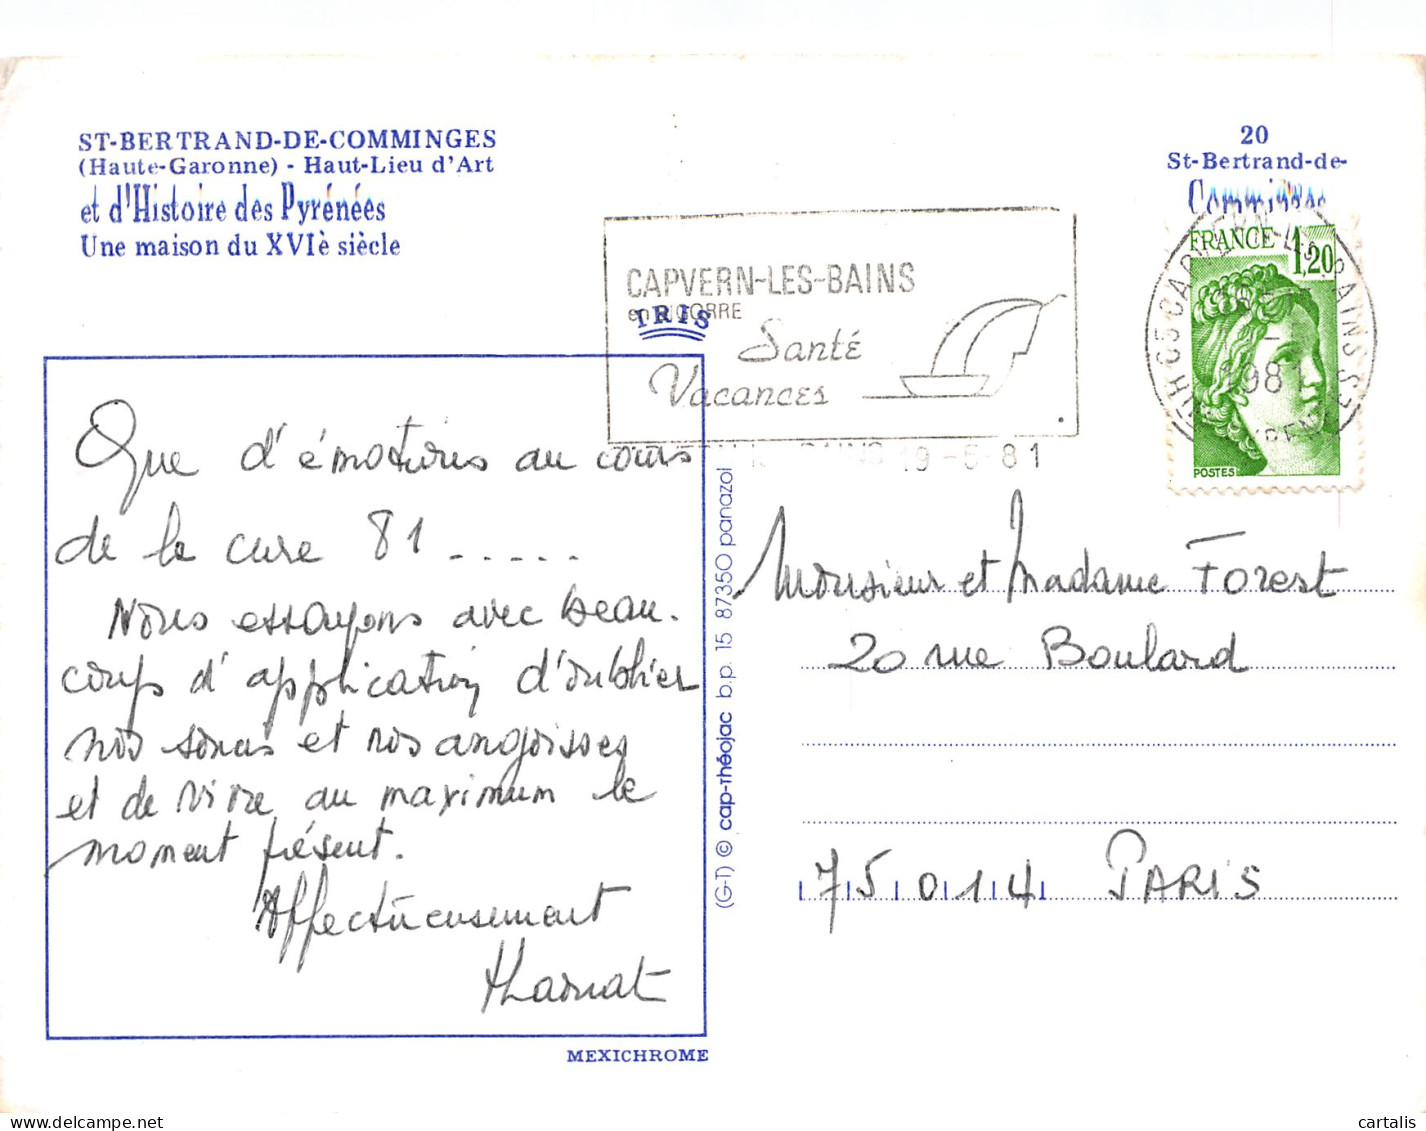 ST-BERTRAND-DE-COMMINGES
(Haute-Garonne) - Haut-Lieu d'Art
et d'Histoire des Pyrénées
Une maison du XVIè siècle
20
St-Bertrand-de-
Comminges
CAPVERN-LES-BAINS
en BIGORRE
Santé
Vacances
IRIS
FRANCE 1,20
POSTES
1981
19-5-81
Que d'émotions au cours
de la cure 81 .....
Nous essayons avec beau-
coup d'application d'oublier
nos soucis et nos angoisses
et de vivre au maximum le
moment présent.
Affectueusement
(G-T) © cap-théojac b.p. 15 87350 panazol
Monsieur et Madame Forest
20 rue Boulard
75014 PARIS
MEXICHROME
cartalis